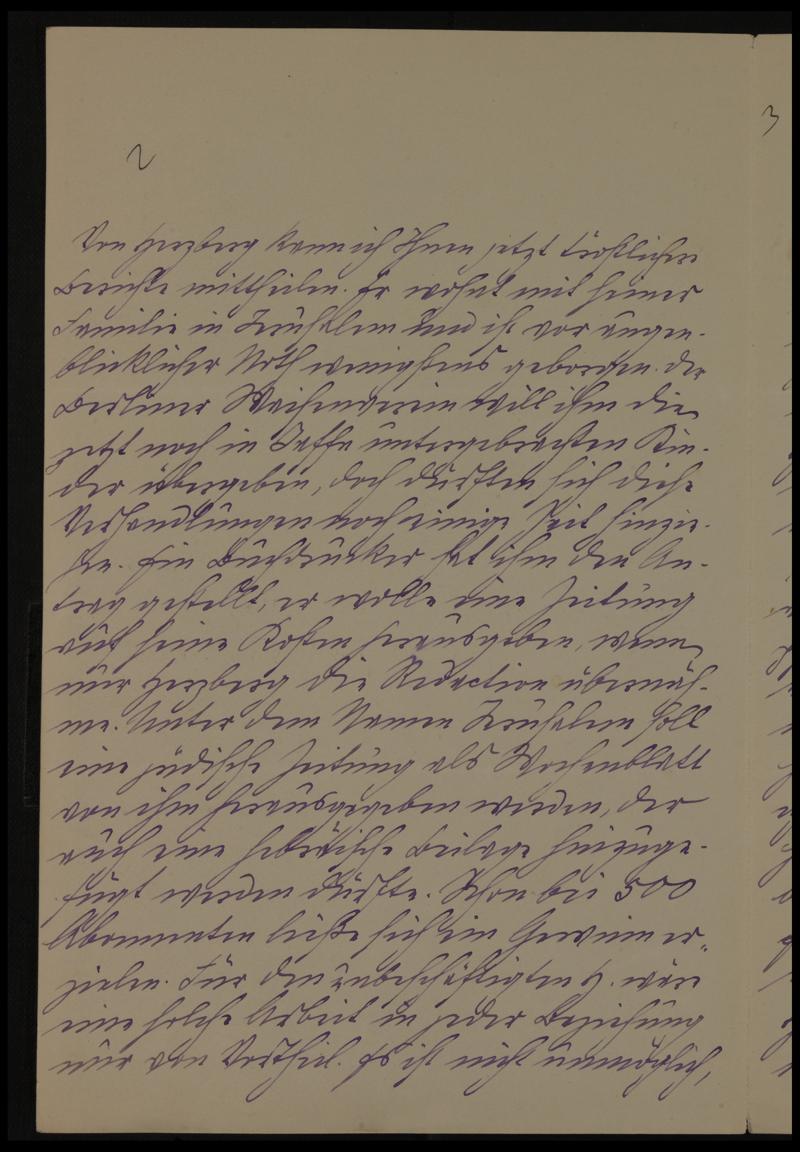 2
3
Von Herzberg kann ich Ihnen jetzt tröstlichere
Berichte mittheilen. Er wohnt mit seiner
Familie in Jerusalem und ist vor augen-
blicklicher Noth wenigstens geborgen. Der
Berliner Waisenverein will ihm die
jetzt noch in Jaffa untergebrachten Kin-
der übergeben, doch dürften sich diese
Verhandlungen noch einige Zeit hinzie-
hen. Ein Buchdrucker hat ihm den An-
trag gestellt, er wolle eine Zeitung
auf seine Kosten herausgeben, wenn
nur Herzberg die Redaction übernäh-
me. Unter dem Namen Jerusalem soll
eine jüdische Zeitung als Wochenblatt
von ihm herausgegeben werden, der
auch eine hebräische Beilage hinzuge-
fügt werden dürfte. Schon bei 500
Abonnenten ließe sich ein Gewinn er-
zielen. Für den unbeschäftigten H. wäre
eine solche Arbeit in jeder Beziehung
nur von Vortheil. Es ist nicht unmöglich,